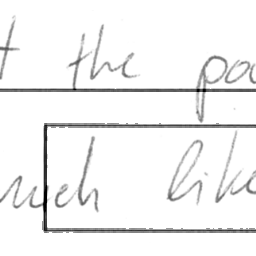 t the pa
much like